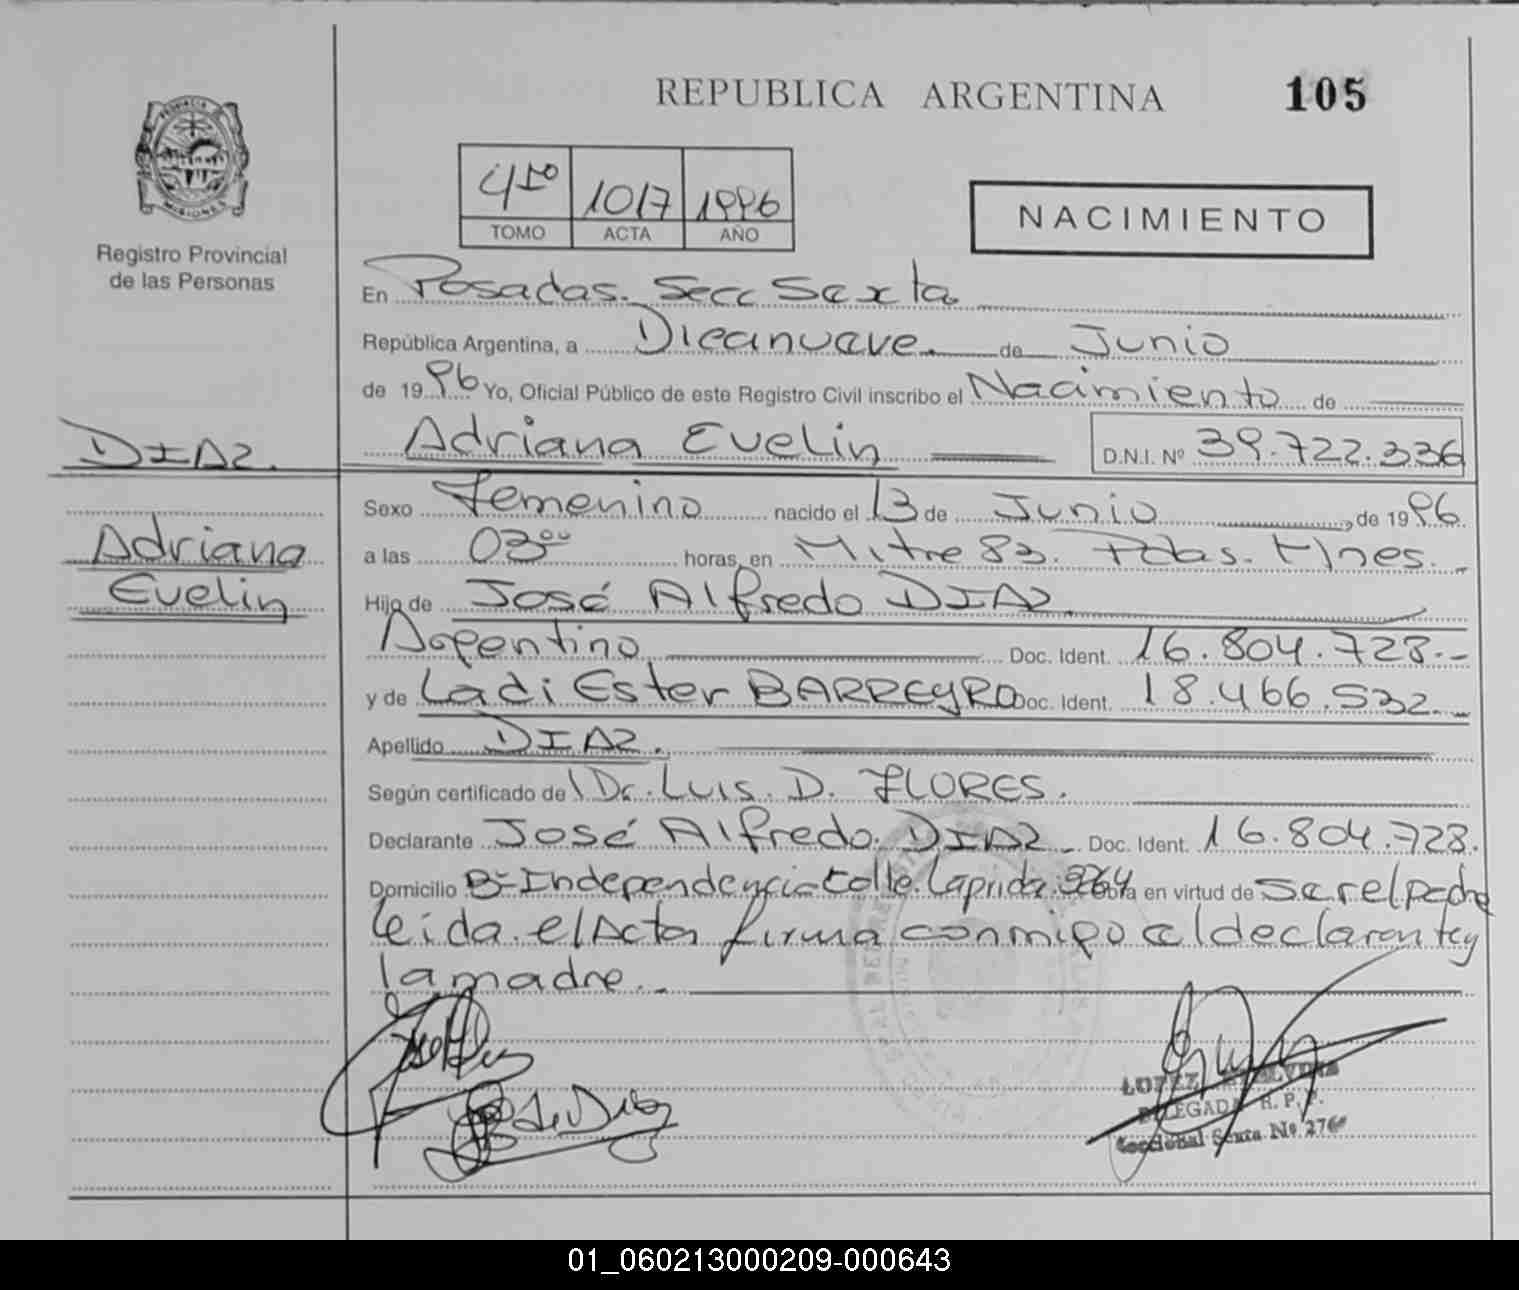 REPUBLICA ARGENTINA
105
PROVINCIA
MISIONES
Registro Provincial
de las Personas
4to 1017 1996
TOMO ACTA AÑO
NACIMIENTO
En Posadas. Secc Sexta
República Argentina, a Diecinueve. de Junio
de 1996 Yo, Oficial Público de este Registro Civil inscribo el Nacimiento de
DIAZ.
Adriana Evelin D.N.I. Nº 39.722.336
Adriana
Evelin
Sexo Femenino nacido el 13 de Junio, de 1996.
a las 03 00 horas, en Mitre 83. Pdas. Mnes.
Hijo de José Alfredo DIAZ.
Argentino Doc. Ident. 16.804.728.-
y de Ladi Ester BARREYRO Doc. Ident. 18.466.532.-
Apellido DIAZ.
Según certificado de Dr. Luis. D. FLORES.
Declarante José Alfredo. DIAZ.- Doc. Ident. 16.804.728.
Domicilio Bº Independencia Calle. Laprida. 3264 Obra en virtud de Ser el padre
leida. el Acta firma conmigo el declarante y
la madre.-
LOPEZ
DELEGADA R. P. P.
Seccional Sexta Nº 276
01_060213000209-000643